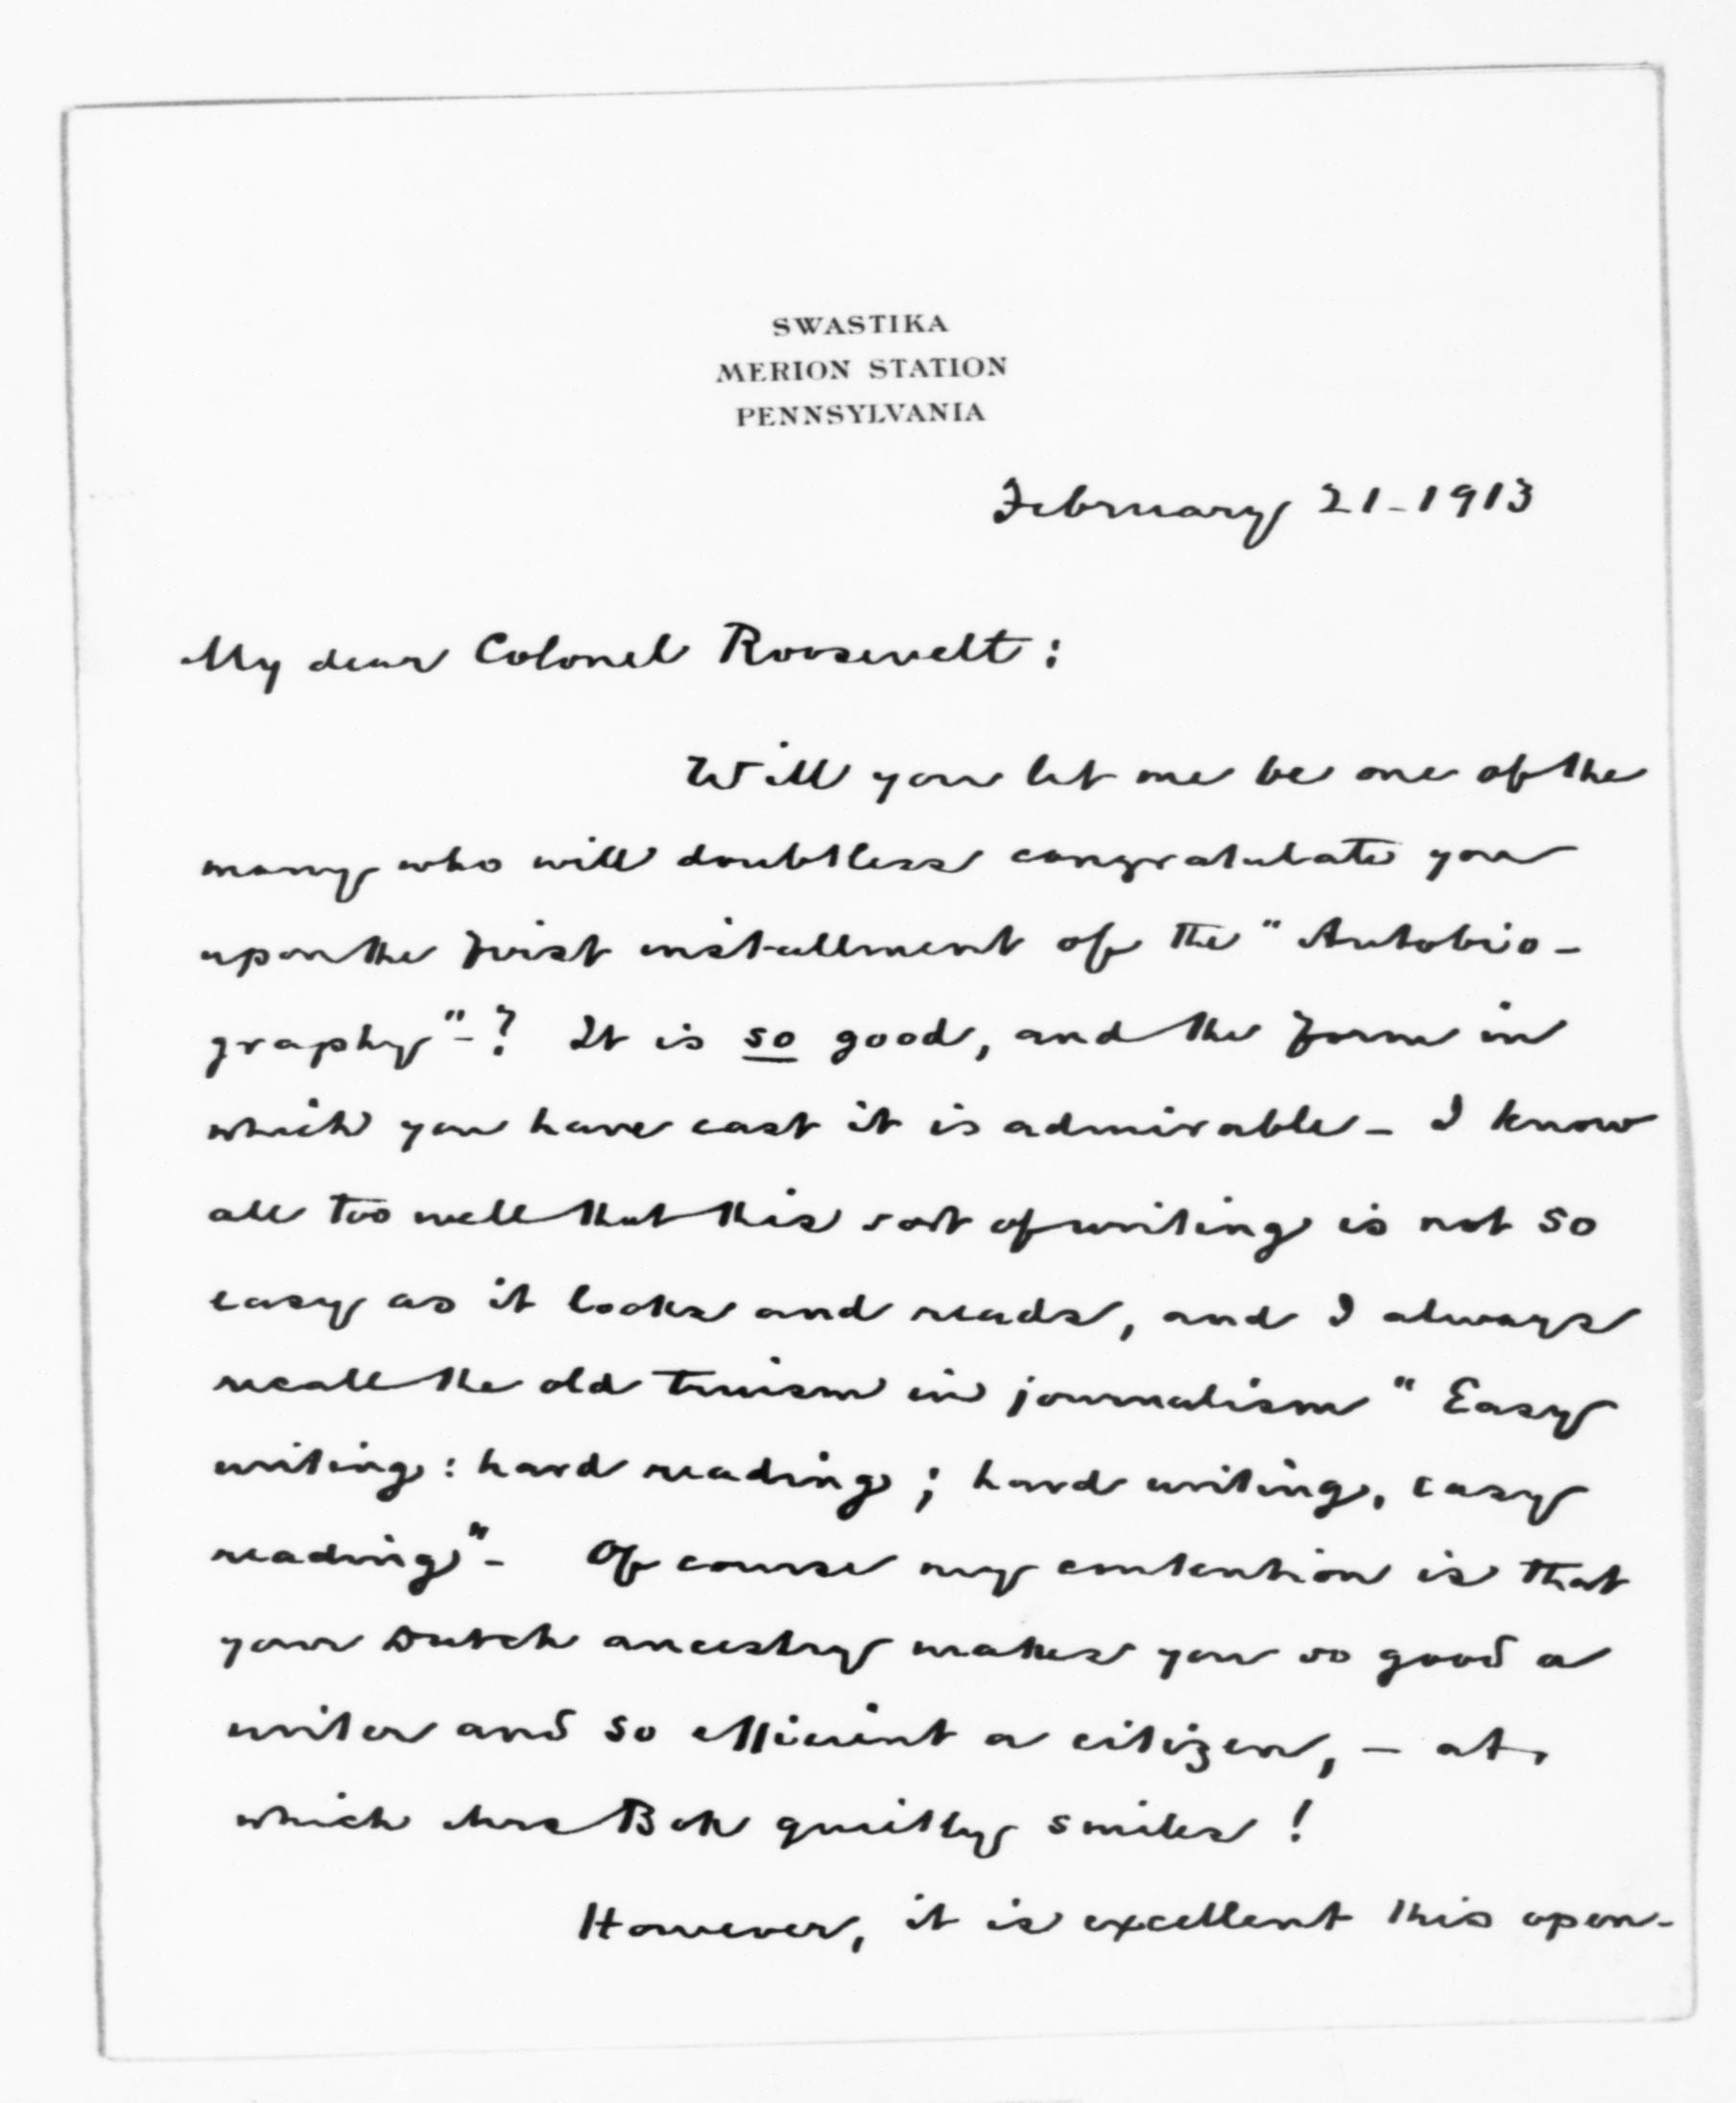 SWASTIKA
MERION STATION
PENNSYLVANIA
February 21-1913
My dear Colonel Roosevelt:
Will you let me be one of the
many who will doubtless congratulate you
upon the first installment of the "Autobio-
graphy"-? It is so good, and the form in
which you have cast it is admirable - I know
all too well that this sort of writing is not so
easy as it looks and reads, and I always
recall the old truism in journalism "Easy
writing: hard reading; hard writing, easy
reading"- Of course my contention is that
your Dutch ancestry makes you so good a
writer and so efficient a citizen, - at
which Mrs Bok quietly smiles!
However, it is excellent this open-